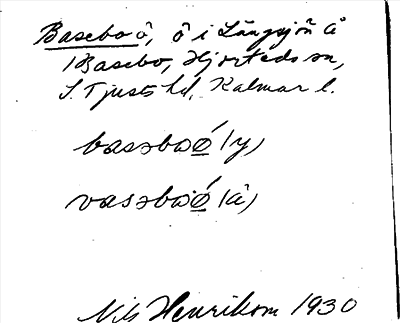 Basebo ö, ö i Långsjön å
Basebo, Hjorteds sn,
S. Tjusts hd, Kalmar l.
basəbo ǿ (y)
vasəbo ǿ (å)
Nils Henrikson 1930